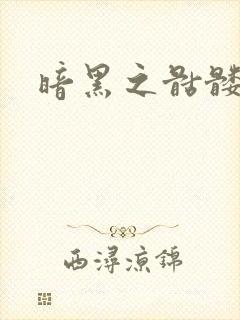 暗黑之骷髅
西潯凉锦